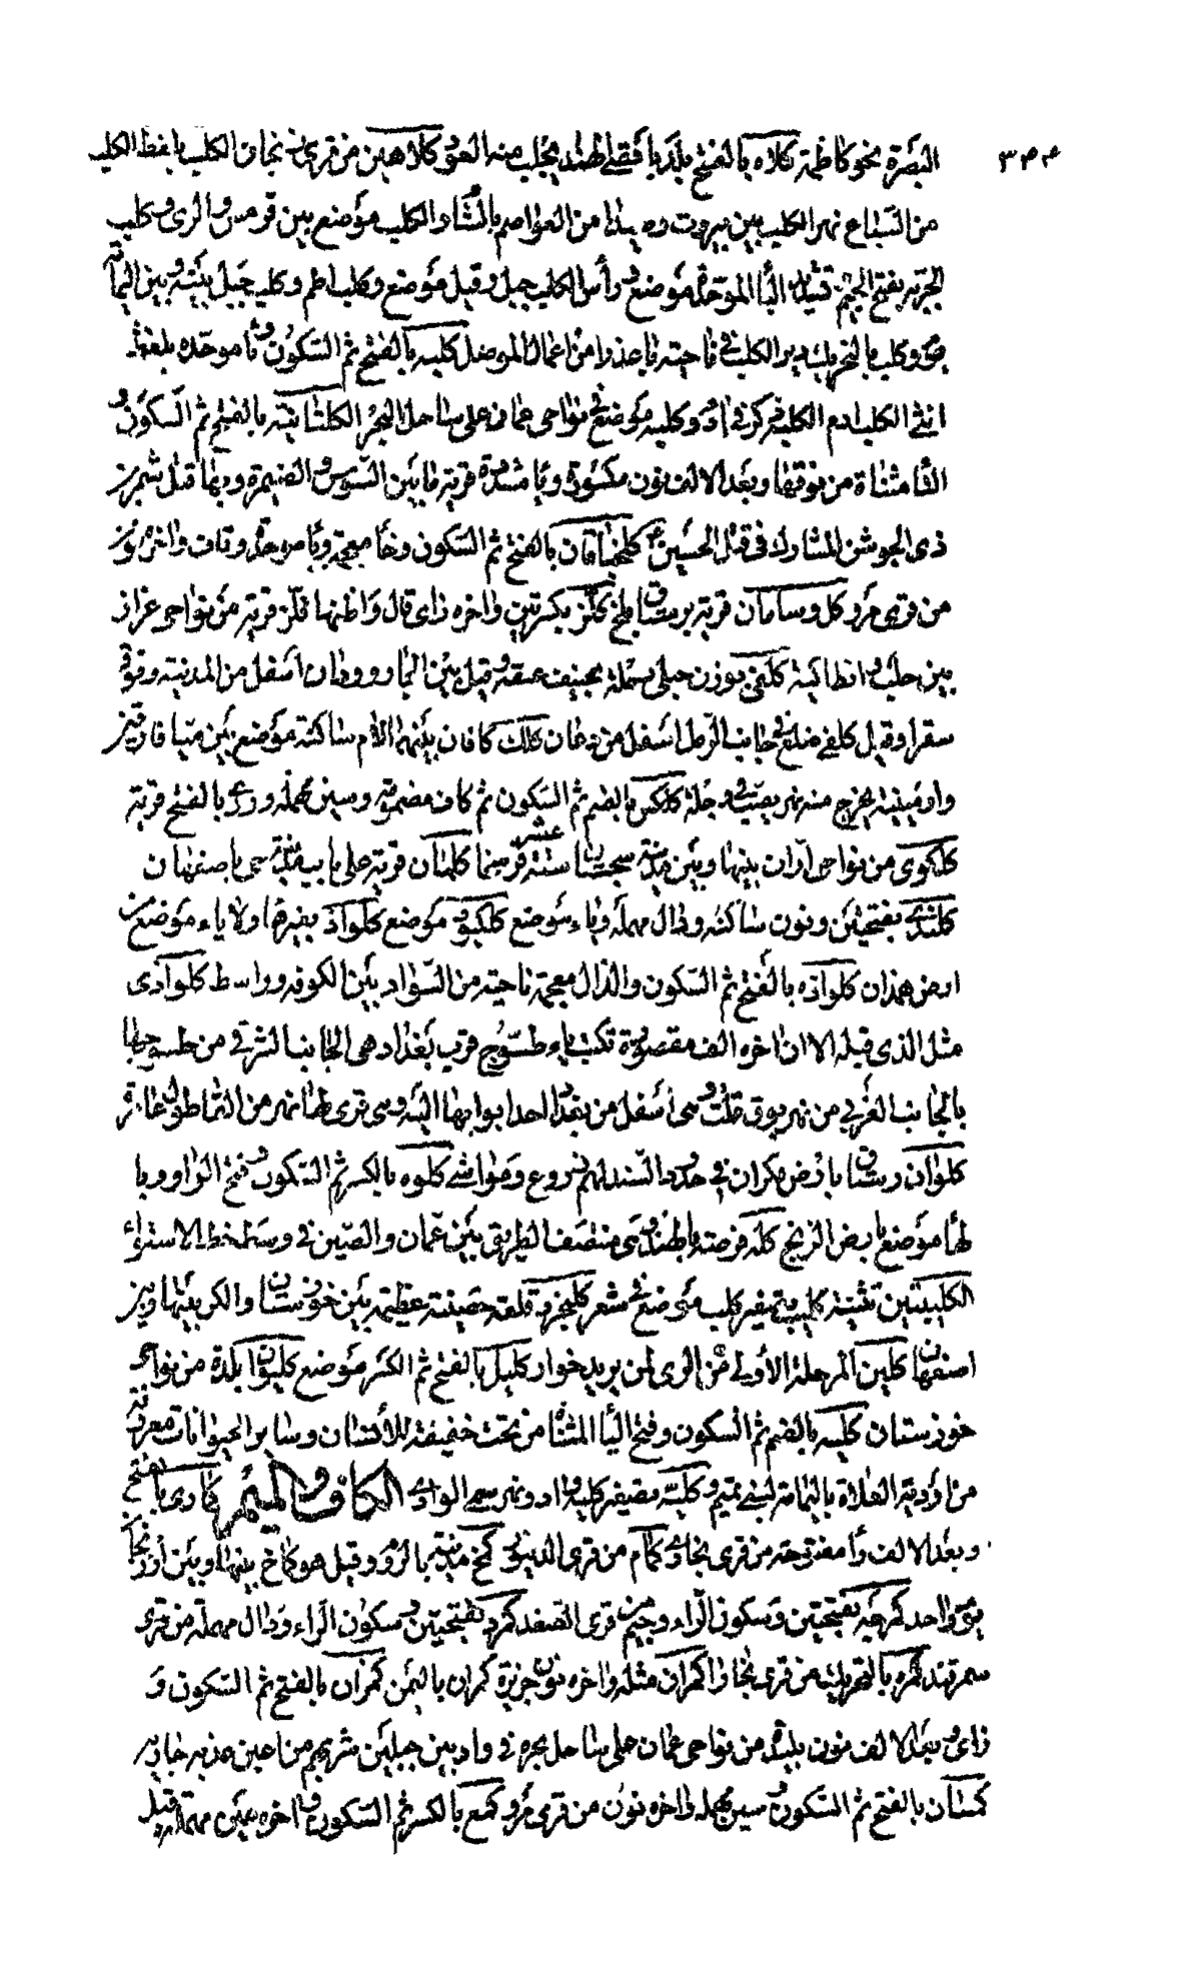 ٣٤٤
البصرة نحو كاظمة كلاه بالفتح بلد بأقصى الهند يجلب منه العود كلاهين من قرى زنجان الكلب بلفظ الكلب
من السباع نهر الكلب بين بيروت وصيدا من العواصم بالشام والكلب موضع بين قومس والرى وكلب
الجربه بفتح الجيم تشديد البا الموحدة موضع ورأس الكلب جبل وقيل موضع وكلب اطم وكلب جبل بينه وبين اليمامة
يوم وكلب بالتحريك دير الكلب فى ناحية باعذرا من اعمال الموصل كلبه بالفتح ثم السكون وبا موحده بلفظ
انثى الكلب ادم الكلبه وكلبه موضع فى نواحى عمان على ساحل البحر الكلتانيه بالفتح ثم السكون و
التا مثناة من فوقها وبعد الالف نون مكسورة ويا مشددة قرية ما بين السوس والصيمرة وبها قتل شمر بن
ذى الجوشن المشارك فى قتل الحسين ع كلخباقان بالفتح ثم السكون وخا معجمة وبا موحدة وقاف واخره نون
من قرى مرو كل وسامان قرية برستاق بلخ كلز بكسرتين واخره زاى قال واظنها قلز قرية من نواحى عزاز
بين حلب وانطاكية كلفى بوزن حبلى رملة بجنب غيقة وقيل بين الجار وودان اسفل من الثنية وفوق
سقرا وقيل كلفى ضلع فى جانب الرمل اسفل من دعان كلك كافان بينهما اللام ساكنة موضع بين ميافارقين
وارمينية يخرج منه نهر يصب فى دجلة كلكس بالضم ثم السكون ثم كاف مضمومة وسين مهملة وروى بالفتح قرية
كلكوى من نواحى اران بينها وبين مدينة سجستان ستة عشر فرسخا كلمان قرية على باب مدينة جى باصفهان
كلندى بفتحتين ونون ساكنه ودال مهملة وياء موضع كلنكبود موضع كلواذ بغير ها ولا ياء موضع من
ارض همذان كلواذه بالفتح ثم السكون والذال معجمة ناحية من السواد بين الكوفه وواسط كلواذى
مثل الذى قبله الا ان اخره الف مقصورة تكتب ياء طسوج قرب بغداد هى الجانب الشرقى من طسوجها
بالجانب الغربى من نهر بوق قلت وهى اسفل من بغداد احد ابوابها اليه وهى قرى لها نهر من النهروان عامرة
كلوان رستاق بارض مكران فى حدود السند لهم زروع ومواشى كلوه بالكسر ثم السكون وفتح الواو وها
لها موضع بارض الزنج كله فرضة بالهند وهى منتصف الطريق بين عمان والصين فى وسط خط الاستواء
الكليبتين تثنية كليب تصغير كلب موضع فى شعر كليجرد قلعة حصينة عظيمة بين خوزستان والكر بينها وبين
اصفهان كلين المرحلة الأولى من الرى لمن يريد خوار كليل بالفتح ثم الكسر موضع كليوان بلدة من نواحى
خوزستان كليه بالضم ثم السكون وفتح اليا المثناة من تحت خفيفة للأنسان وساير الحيوانات معروفة
من اودية العلاة باليمامة لبنى تميم وكليّه تصغير كلية واد ونهر سمى الوادى الكاف والميم كمارى بالفتح
وبعد الالف را مفتوحة من قرى بخارى كمام من قرى الدينور كمخ مدينة بالروم وقيل هو كماخ بينها وبين ارزنجان
يوم واحد كمرجه بفتحتين وسكون الراء وجيم من قرى الصغد كمرد بفتحتين وسكون الراء ودال مهملة من قرى
سمرقند كمره بالتحريك من قرى بخارا كمران مثله واخره نون جزيرة كمران باليمن كمزان بالفتح ثم السكون و
زاى وبعد الالف نون بليدة من نواحى عمان على ساحل بحره فى واد بين جبلين شربهم من اعين عذبه جاريه
كمسان بالفتح ثم السكون وسين مهمله واخره نون من قرى مرو كمع بالكسر ثم السكون واخره عين مهملة وقيل